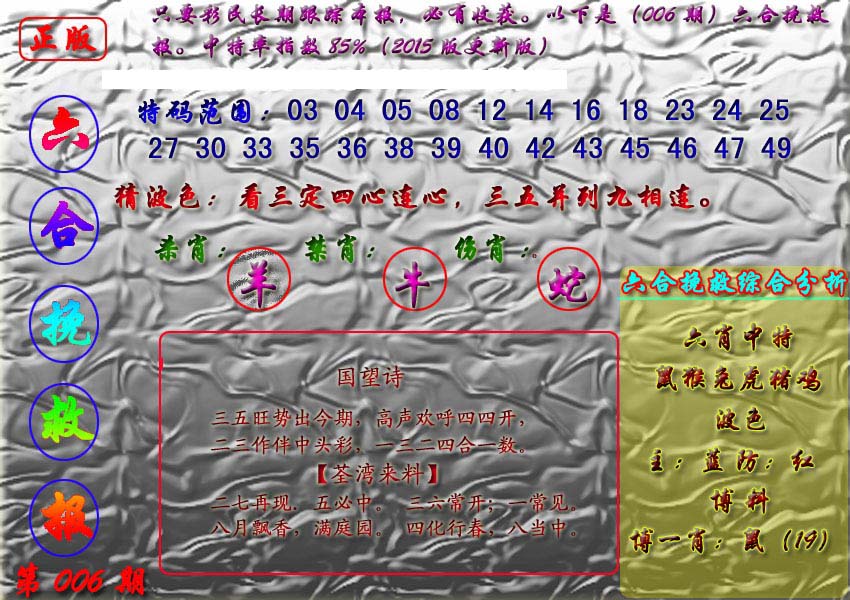 正版
只要彩民长期跟踪本报，必有收获。以下是（006期）六合挽救
报。中特率指数85%（2015版更新版）
六合挽救报
第006期
特码范围：03 04 05 08 12 14 16 18 23 24 25
27 30 33 35 36 38 39 40 42 43 45 46 47 49
猜波色：看三定四心连心，三五并列九相连。
杀肖：羊 禁肖：牛 伤肖：蛇
国望诗
三五旺势出今期，高声欢呼四四开，
二三作伴中头彩，一三二四合一数。
【荃湾来料】
二七再现．五必中。 三六常开；一常见。
八月飘香，满庭园。 四化行春，八当中。
六合挽救综合分析
六肖中特
鼠猴兔虎猪鸡
波色
主：蓝防：红
博料
博一肖：鼠（19）